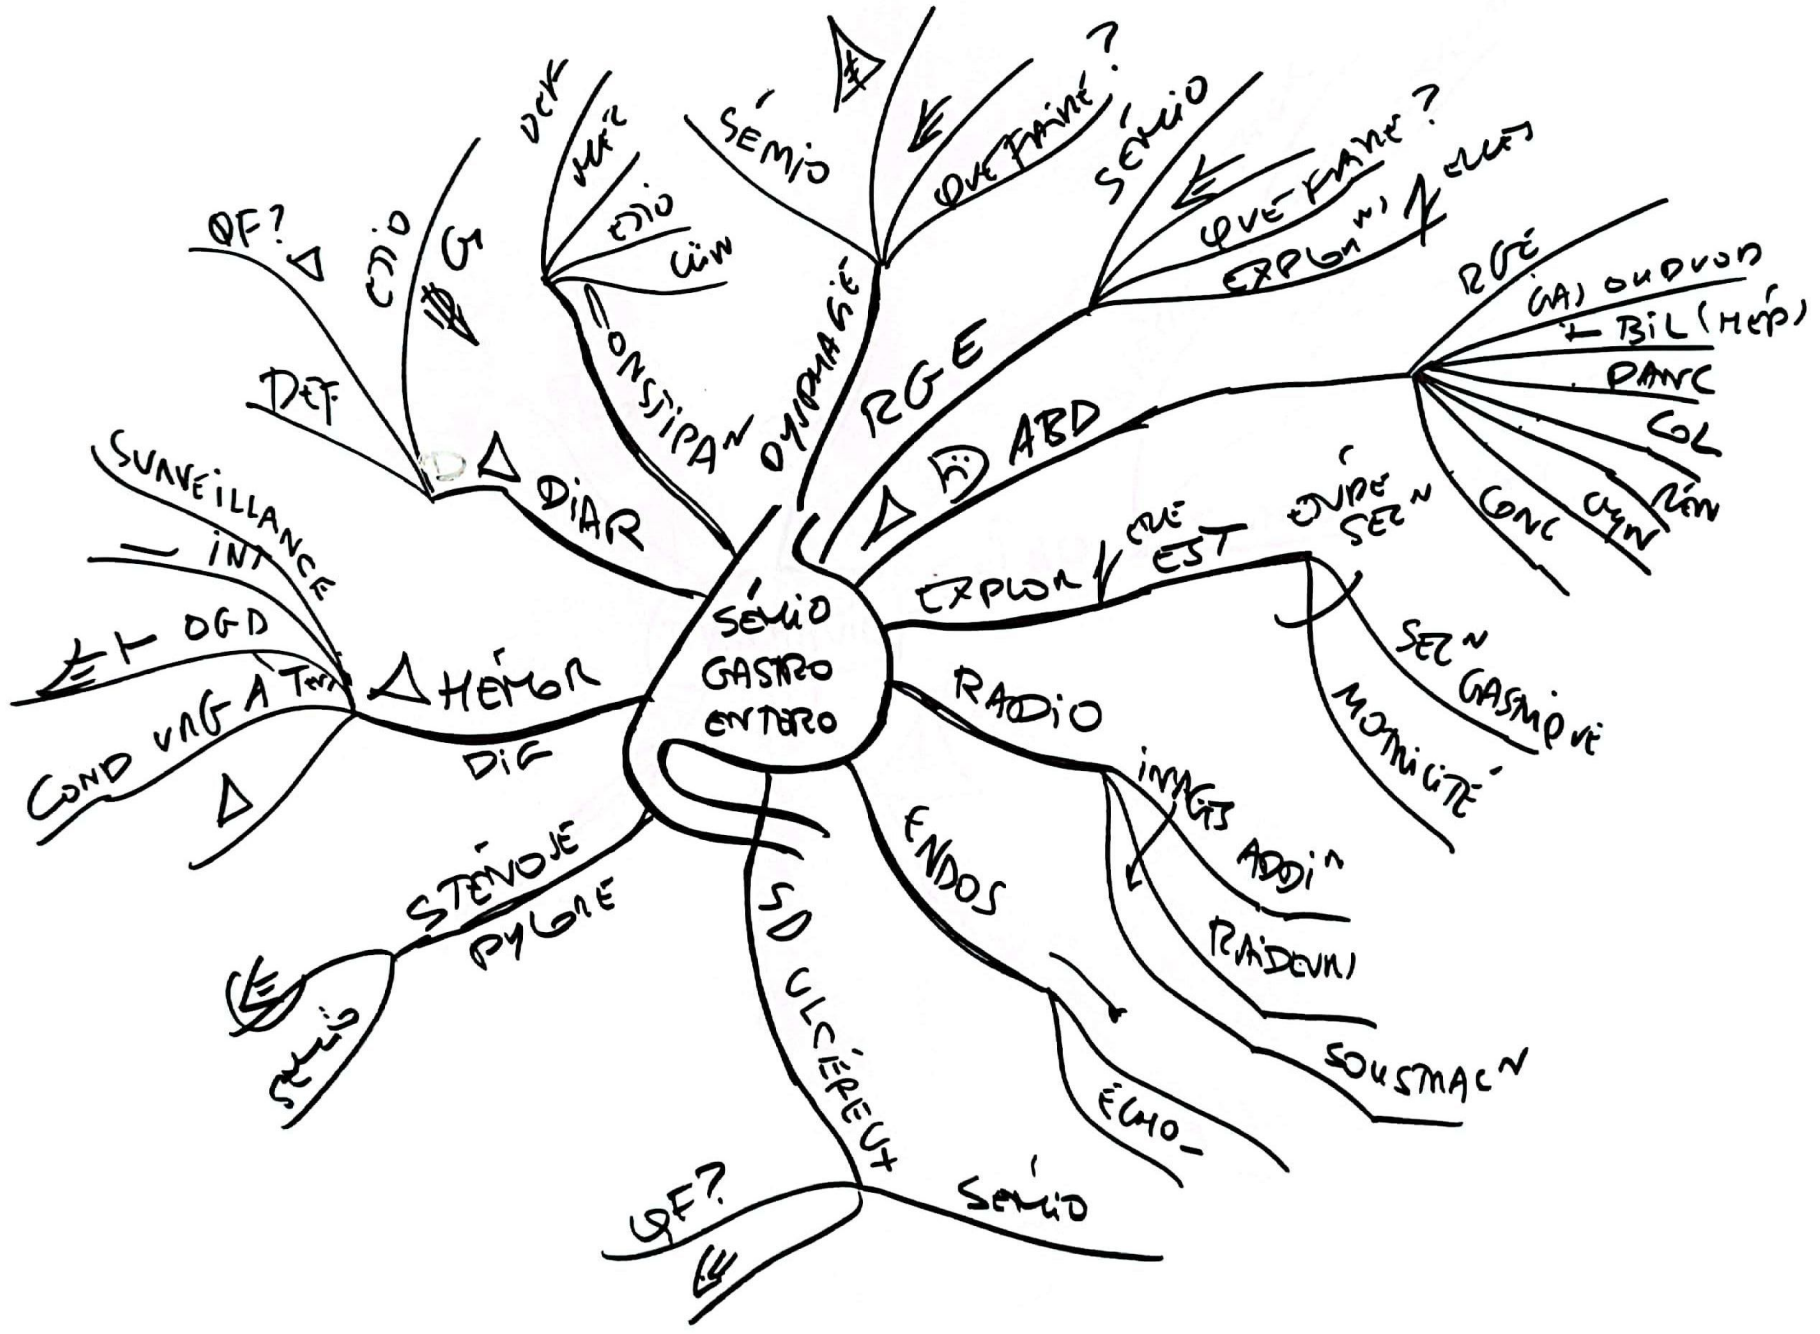 SÉMIO
GASTRO
ENTERO
DYSPHAGIE
SÉMIO
QUE FAIRE?
RGE
SÉMIO
QUE FAIRE?
ABD
RGE
BIL (HÉP)
PANC
COL
RÉN
GYN
EXPLOR
EST
SEZN
SEZN
GASTRIQUE
MOTRICITÉ
RADIO
IMAGES
ADDIN
RAIDEURS
SOUSTRACN
ENDOS
ÉCHO-
SD ULCÉREUX
SÉMIO
QF?
STÉNOSE
PYLORE
SÉMIO
HÉMOR
DIG
SURVEILLANCE
INT
OGD
COND URG A
DIAR
DEF
QF?
G
CONSTIPAN
DEF
CLIN